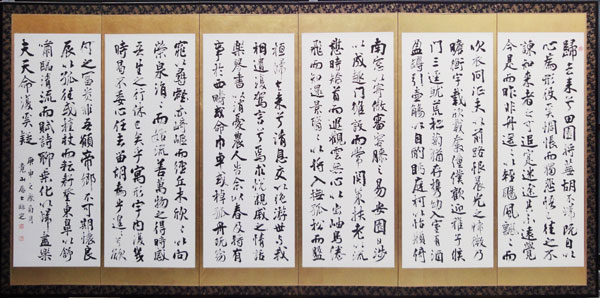 歸去來兮田園將蕪胡不歸既自以
心為形役奚惆悵而獨悲悟已往之不
諫知來者之可追實迷途其未遠覺
今是而昨非舟遙々以輕颺風飄々而
吹衣問征夫以前路恨晨光之熹微乃
瞻衡宇載欣載奔僮僕歡迎稚子候
門三逕就荒松菊猶存攜幼入室有酒
盈罇引壺觴以自酌眄庭柯以怡顏倚
南窓以寄傲審容膝之易安園日涉
以成趣門雖設而常關策扶老以流
憩時矯首而遐觀雲無心以出岫鳥倦
飛而知還景翳々以將入撫孤松而盤
桓歸去來兮請息交以絶游世與我
相遺復駕言兮焉求悅親戚之情話
樂琴書以消憂農人告余以春及將有
事於西疇或命巾車或棹孤舟既窈
窕以尋壑亦崎嶇而經丘木欣々以向
榮泉涓々而始流善萬物之得時感
吾生之行休已矣乎寓形宇内復幾
時曷不委心任去留胡為乎遑々欲
之富貴非吾願帝鄉不可期懷良
辰以孤往或植杖而耘耔登東皋以舒
嘯臨清流而賦詩聊乘化以歸盡樂
夫天命復奚疑
庚申之